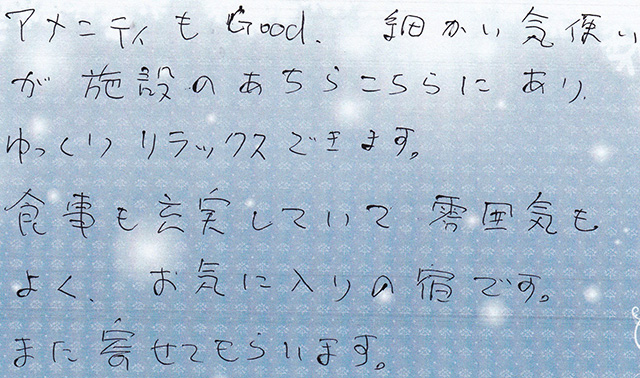 アメニティも Good. 細かい気使い
が 施設のあちらこちらにあり、
ゆっくりリラックスできます。
食事も充実していて 雰囲気も
よく、お気に入りの宿です。
また寄せてもらいます。